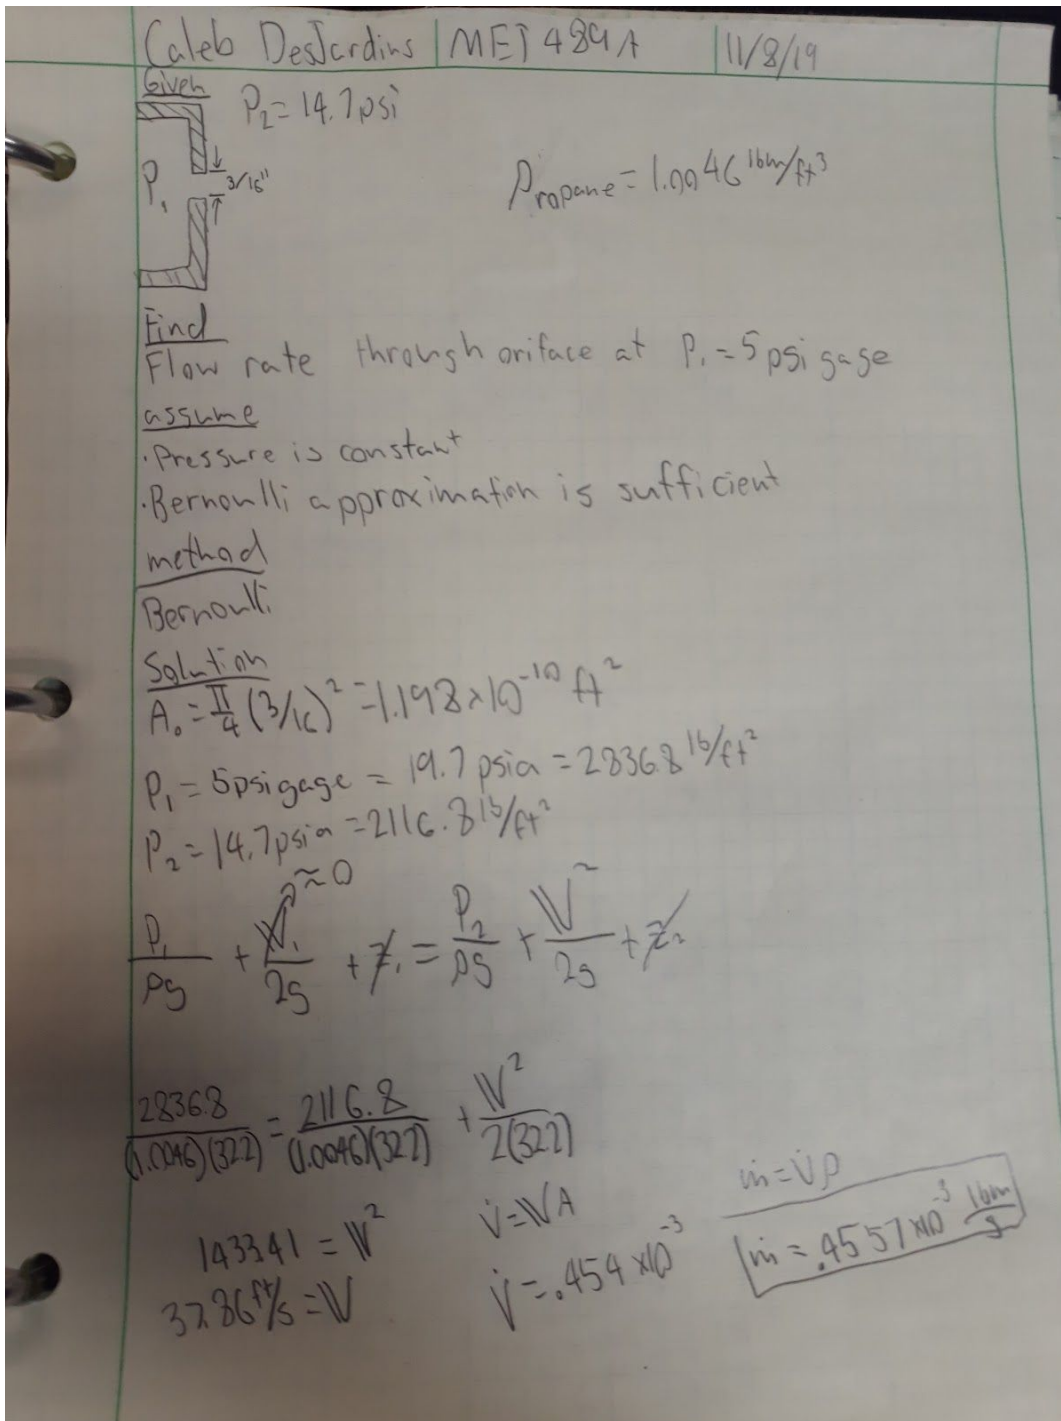 Caleb DesJardins | MET 489A | 11/8/19
Given
P₂ = 14.7 psi
P₁
3/16"
ρropane = 1.0046 lbm/ft³
Find
Flow rate through oriface at P₁ = 5 psi gage
assume
· Pressure is constant
· Bernoulli approximation is sufficient
method
Bernoulli
Solution
A₀ = π/4 (3/16)² = 1.198 x 10⁻¹⁰ ft²
P₁ = 5 psi gage = 19.7 psia = 2836.8 lb/ft²
P₂ = 14.7 psia = 2116.8 lb/ft²
P₁/ρg + V₁²/2g + z₁ = P₂/ρg + V²/2g + z₂
≈0
2836.8/(1.0046)(32.2) = 2116.8/(1.0046)(32.2) + V²/2(32.2)
1433.41 = V²
37.86 ft/s = V
V̇ = VA
V̇ = .454 x10⁻³
ṁ = V̇ρ
ṁ = .4557 x10⁻³ lbm/s